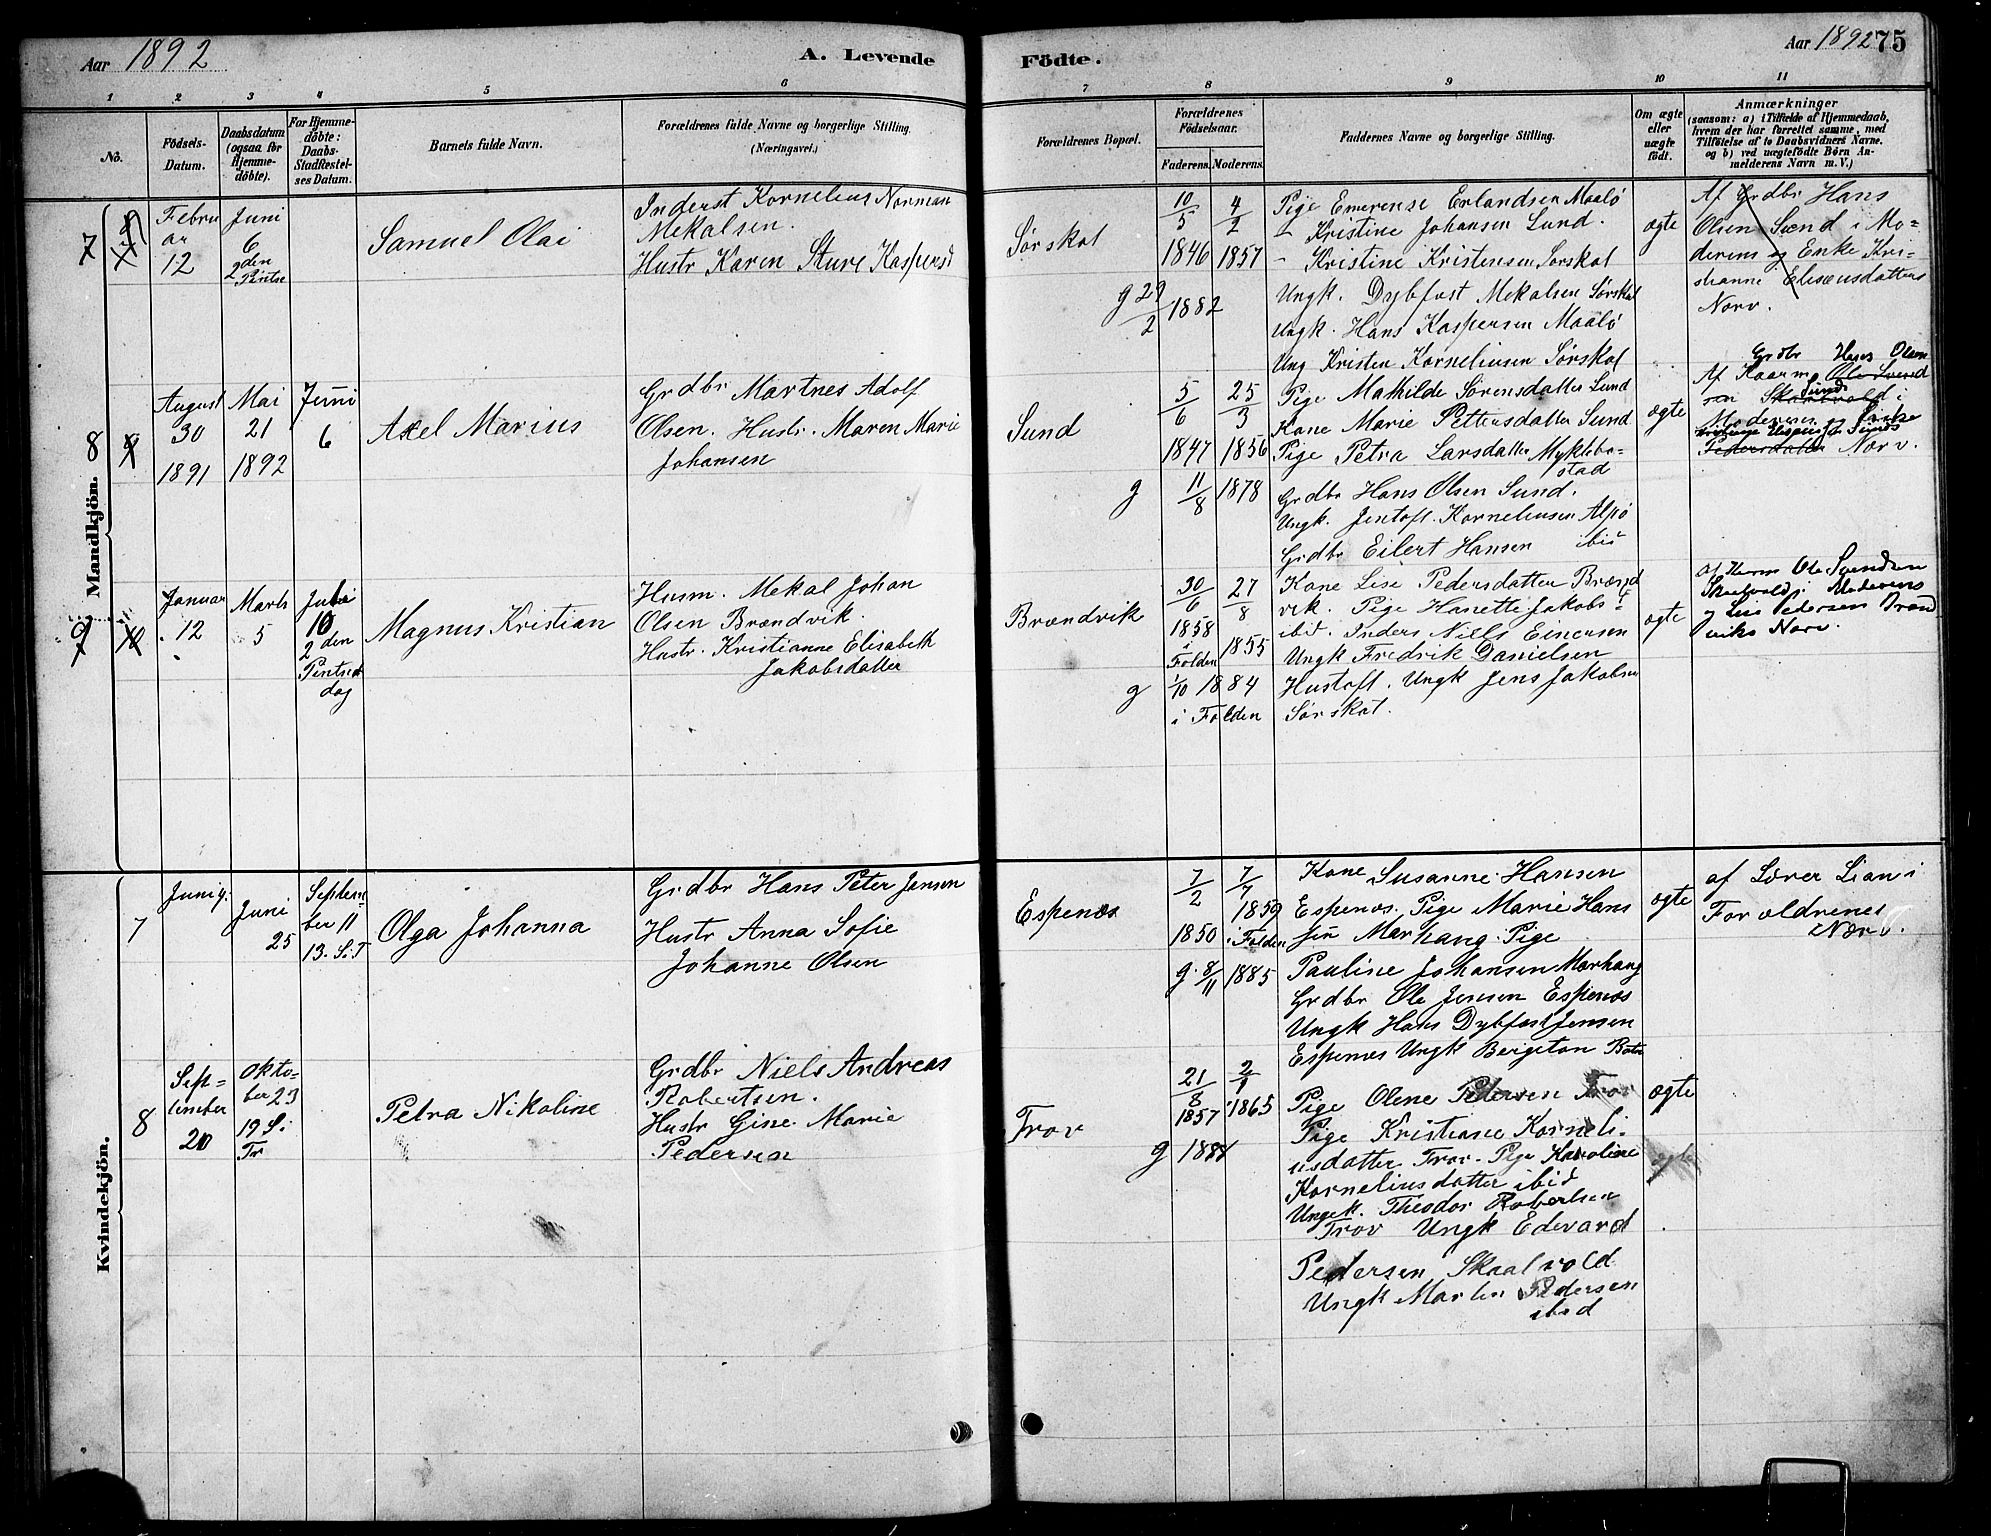 Aar 1892
A. Levende
Födte.
Aar 1892
75
1 2 3 4 5 6 7 8 9 10 11
Nô.
Födsels-
Datum.
Daabsdatum
(ogsaa for
Hjemme-
döbte).
For Hjemme-
döbte:
Daabs-
Stadfæstel-
ses Datum.
Barnets fulde Navn.
Forældrenes fulde Navne og borgerlige Stilling.
(Næringsvei.)
Forældrenes Bopæl.
Forældrenes
Födselsaar.
Faderens. Moderens.
Faddernes Navne og borgerlige Stilling.
Om ægte
eller
uægte
födt.
Anmærkninger
(saasom: a) i Tilfælde af Hjemmedaab,
hvem der har forrettet samme, med
Tilföielse af to Daabsvidners Navne.
og b) ved uægtefödte Börn An-
melderens Navn m. V.)
Mandkjön.
7
Febru
ar
12
Juni
6
2den
Pintse
Samuel Olai
Inderst Kornelius Norman
Mekalsen.
Hustr Karen Sture Kaspersd
Sørskot
10/5 1846
4/2 1857
g 29/2 1882
Pige Emerense Erlandsen Maalø
- Kristine Johansen Lund.
- Kristine Kristensen Sørskot
Ungk. Dybfast Mekalsen Sørskot
Ungk. Hans Kaspersen Maalø
Ung Kristen Korneliusen Sørskot
ægte
Af Grdbr Hans
Olsen Sund i Mo-
derens og Enke Kri-
stianne Eliseusdatters
Nærv.
8
August
30
1891
Mai
21
1892
Juni
6
Axel Marius
Grdbr Martnes Adolf
Olsen. Hustr. Maren Marie
Johansen
Sund
5/6 1847
25/3 1856
g 11/8 1878
Pige Mathilde Sørensdatter Sund
Kone Marie Pettersdatter Sund
Pige Petra Larsdatter Myklebo-
stad
Grdbr Hans Olsen Sund.
Ungk. Jentoft Korneliusen Alpø
Grdbr Eilert Hansen ibid
ægte
Grdbr Hans Olsen
Sund i
Moderens
Nærv.
9
Januar
12
Marts
5
10
2den
Pintse
dag
Magnus Kristian
Husm. Mekal Johan
Olsen Brændvik.
Hustr. Kristianne Elisabeth
Jakobsdatter
Brændvik
30/6 1858
i Folden
27/8 1855
g 1/10 1884
i Folden
Kone Lise Pedersdatter Brænd
vik. Pige Hanette Jakobs-
ibid. Inders Niels Einersen
Ungk Fredrik Danielsen
Hustoft. Ungk Jens Jakobsen
Sørskot.
ægte
af Husm Ole Svendsen
Skaalvold i Moderens
og Lise Pedersen Brænd
viks Nærv.
Kvindekjön.
7
Juni 9.
Juni
25
Septem-
ber 11
13. S. T
Olga Johanna
Grdbr Hans Peter Jensen
Hustr Anna Sofie
Johanne Olsen
Espenæs
7/2 1850
7/7 1859
i Folden
g. 8/11 1885
Kone Susanne Hansen
Espenæs. Pige Marie Hans
sen Marhaug. Pige
Pauline Johansen Marhaug
Grdbr Ole Jensen Espenæs
Ungk Hans Dybfast Jensen
Espenæs Ungk Bergeton
ægte
af Lærer Lian i
Forældrenes
Nærv.
8
Sep-
tember
20
Okto-
ber 23
19 S.
Tr
Petra Nikoline
Grdbr Niels Andreas
Robertsen.
Hustr Gine Marie
Pedersen
Trov
21/8 1857
1865
g 1884
Pige Olene Pedersen Trov
Pige Kristiane Korneli-
usdatter Trov. Pige Karoline
Korneliusdatter ibid
Ungk. Theodor Robertsen
Trov Ungk Edevard
Pedersen Skaalvold
Ungk Martin Pedersen
ibid
ægte
ægte